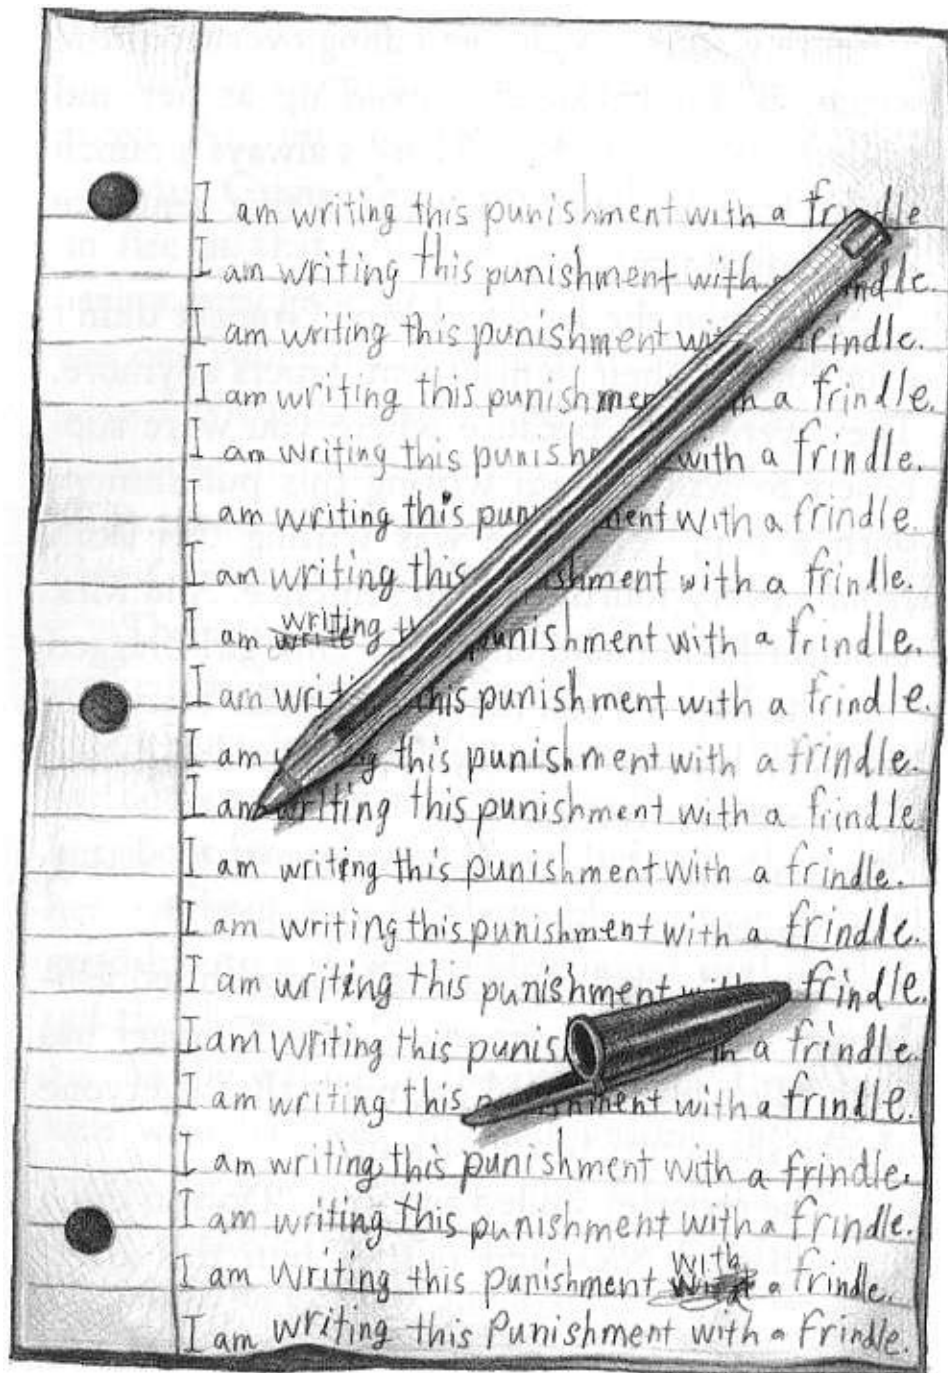 I am writing this punishment with a frindle
I am writing this punishment with a frindle.
I am writing this punishment with a frindle.
I am writing this punishment with a frindle.
I am writing this punishment with a frindle.
I am writing this punishment with a frindle.
I am writing this punishment with a frindle.
I am writing this punishment with a frindle.
I am writing this punishment with a frindle.
I am writing this punishment with a frindle.
I am writing this punishment with a frindle
I am writing this punishment with a frindle.
I am writing this punishment with a frindle.
I am writing this punishment with a frindle.
I am writing this punishment with a frindle.
I am writing this punishment with a frindle.
I am writing this punishment with a frindle.
I am writing this punishment with a frindle.
I am writing this punishment with a frindle.
I am writing this Punishment with a frindle.